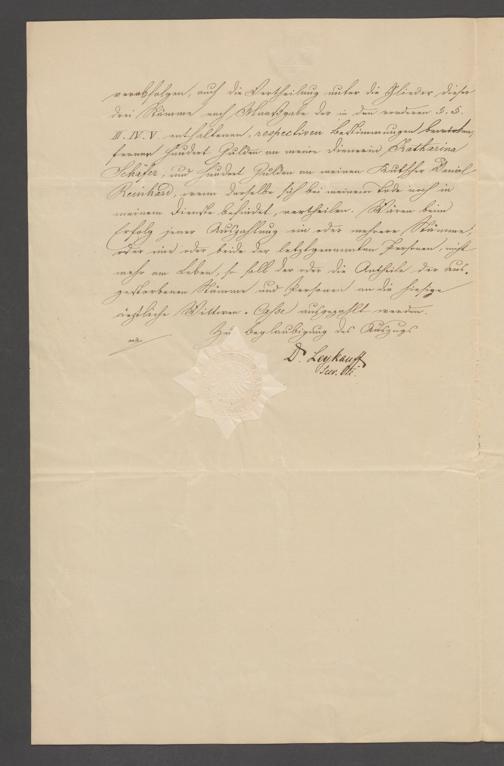 verabfolgen, auch die Vertheilung unter die Glieder dieser
drei Stämme nach Maaßgabe der in den vorderen §. §.
III. IV. V. enthaltenen, respectiven Bestimmungen bewirken,
ferner hundert Gulden an meine Dienerin Katharina
Schäfer, und hundert Gulden an meinen Kutscher Daniel
Reinhard, wenn derselbe sich bei meinem Tode noch in
meinem Dienste befindet, vertheilen. Wären beim
Erfolg jener Auszahlung ein oder mehrere Stämme,
oder eine oder beide der letztgenannten Personen, nicht
mehr am Leben, so soll der oder die Antheile der aus-
gestorbenen Stämme und Personen an die hiesige
Wittwen-Casse ausgezahlt werden.
Zur Beglaubigung des Auszugs
Dr. Leykauff